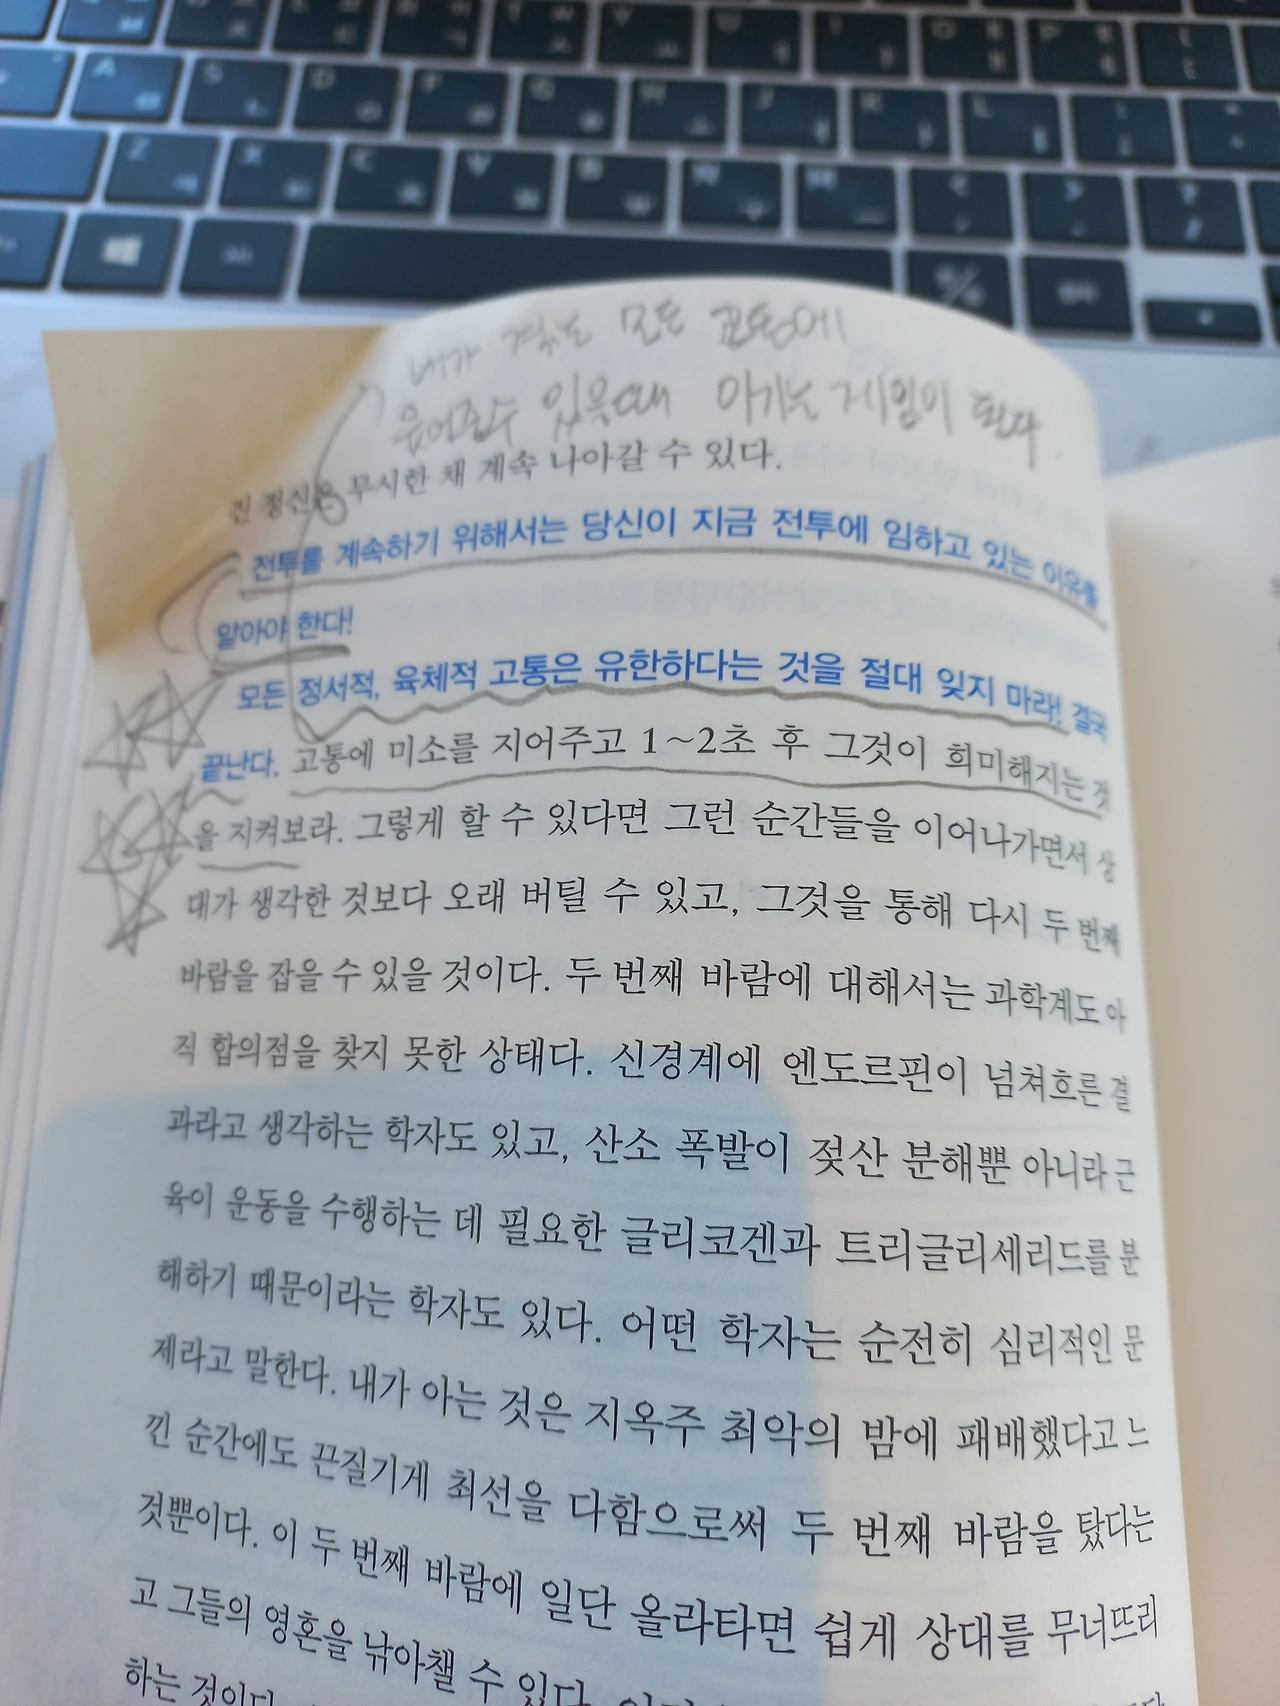 A S D F G H J K L
Z X C V B N M
내가 겪는 모든 고통에
웃어줄수 있을때 이기는 게임이 된다.
진 정신은 무시한 채 계속 나아갈 수 있다.
전투를 계속하기 위해서는 당신이 지금 전투에 임하고 있는 이유를
알아야 한다!
모든 정서적, 육체적 고통은 유한하다는 것을 절대 잊지 마라! 결국
끝난다. 고통에 미소를 지어주고 1~2초 후 그것이 희미해지는 것
을 지켜보라. 그렇게 할 수 있다면 그런 순간들을 이어나가면서 상
대가 생각한 것보다 오래 버틸 수 있고, 그것을 통해 다시 두 번째
바람을 잡을 수 있을 것이다. 두 번째 바람에 대해서는 과학계도 아
직 합의점을 찾지 못한 상태다. 신경계에 엔도르핀이 넘쳐흐른 결
과라고 생각하는 학자도 있고, 산소 폭발이 젖산 분해뿐 아니라 근
육이 운동을 수행하는 데 필요한 글리코겐과 트리글리세리드를 분
해하기 때문이라는 학자도 있다. 어떤 학자는 순전히 심리적인 문
제라고 말한다. 내가 아는 것은 지옥주 최악의 밤에 패배했다고 느
낀 순간에도 끈질기게 최선을 다함으로써 두 번째 바람을 탔다는
것뿐이다. 이 두 번째 바람에 일단 올라타면 쉽게 상대를 무너뜨리
고 그들의 영혼을 낚아챌 수 있다.
하는 것이다.